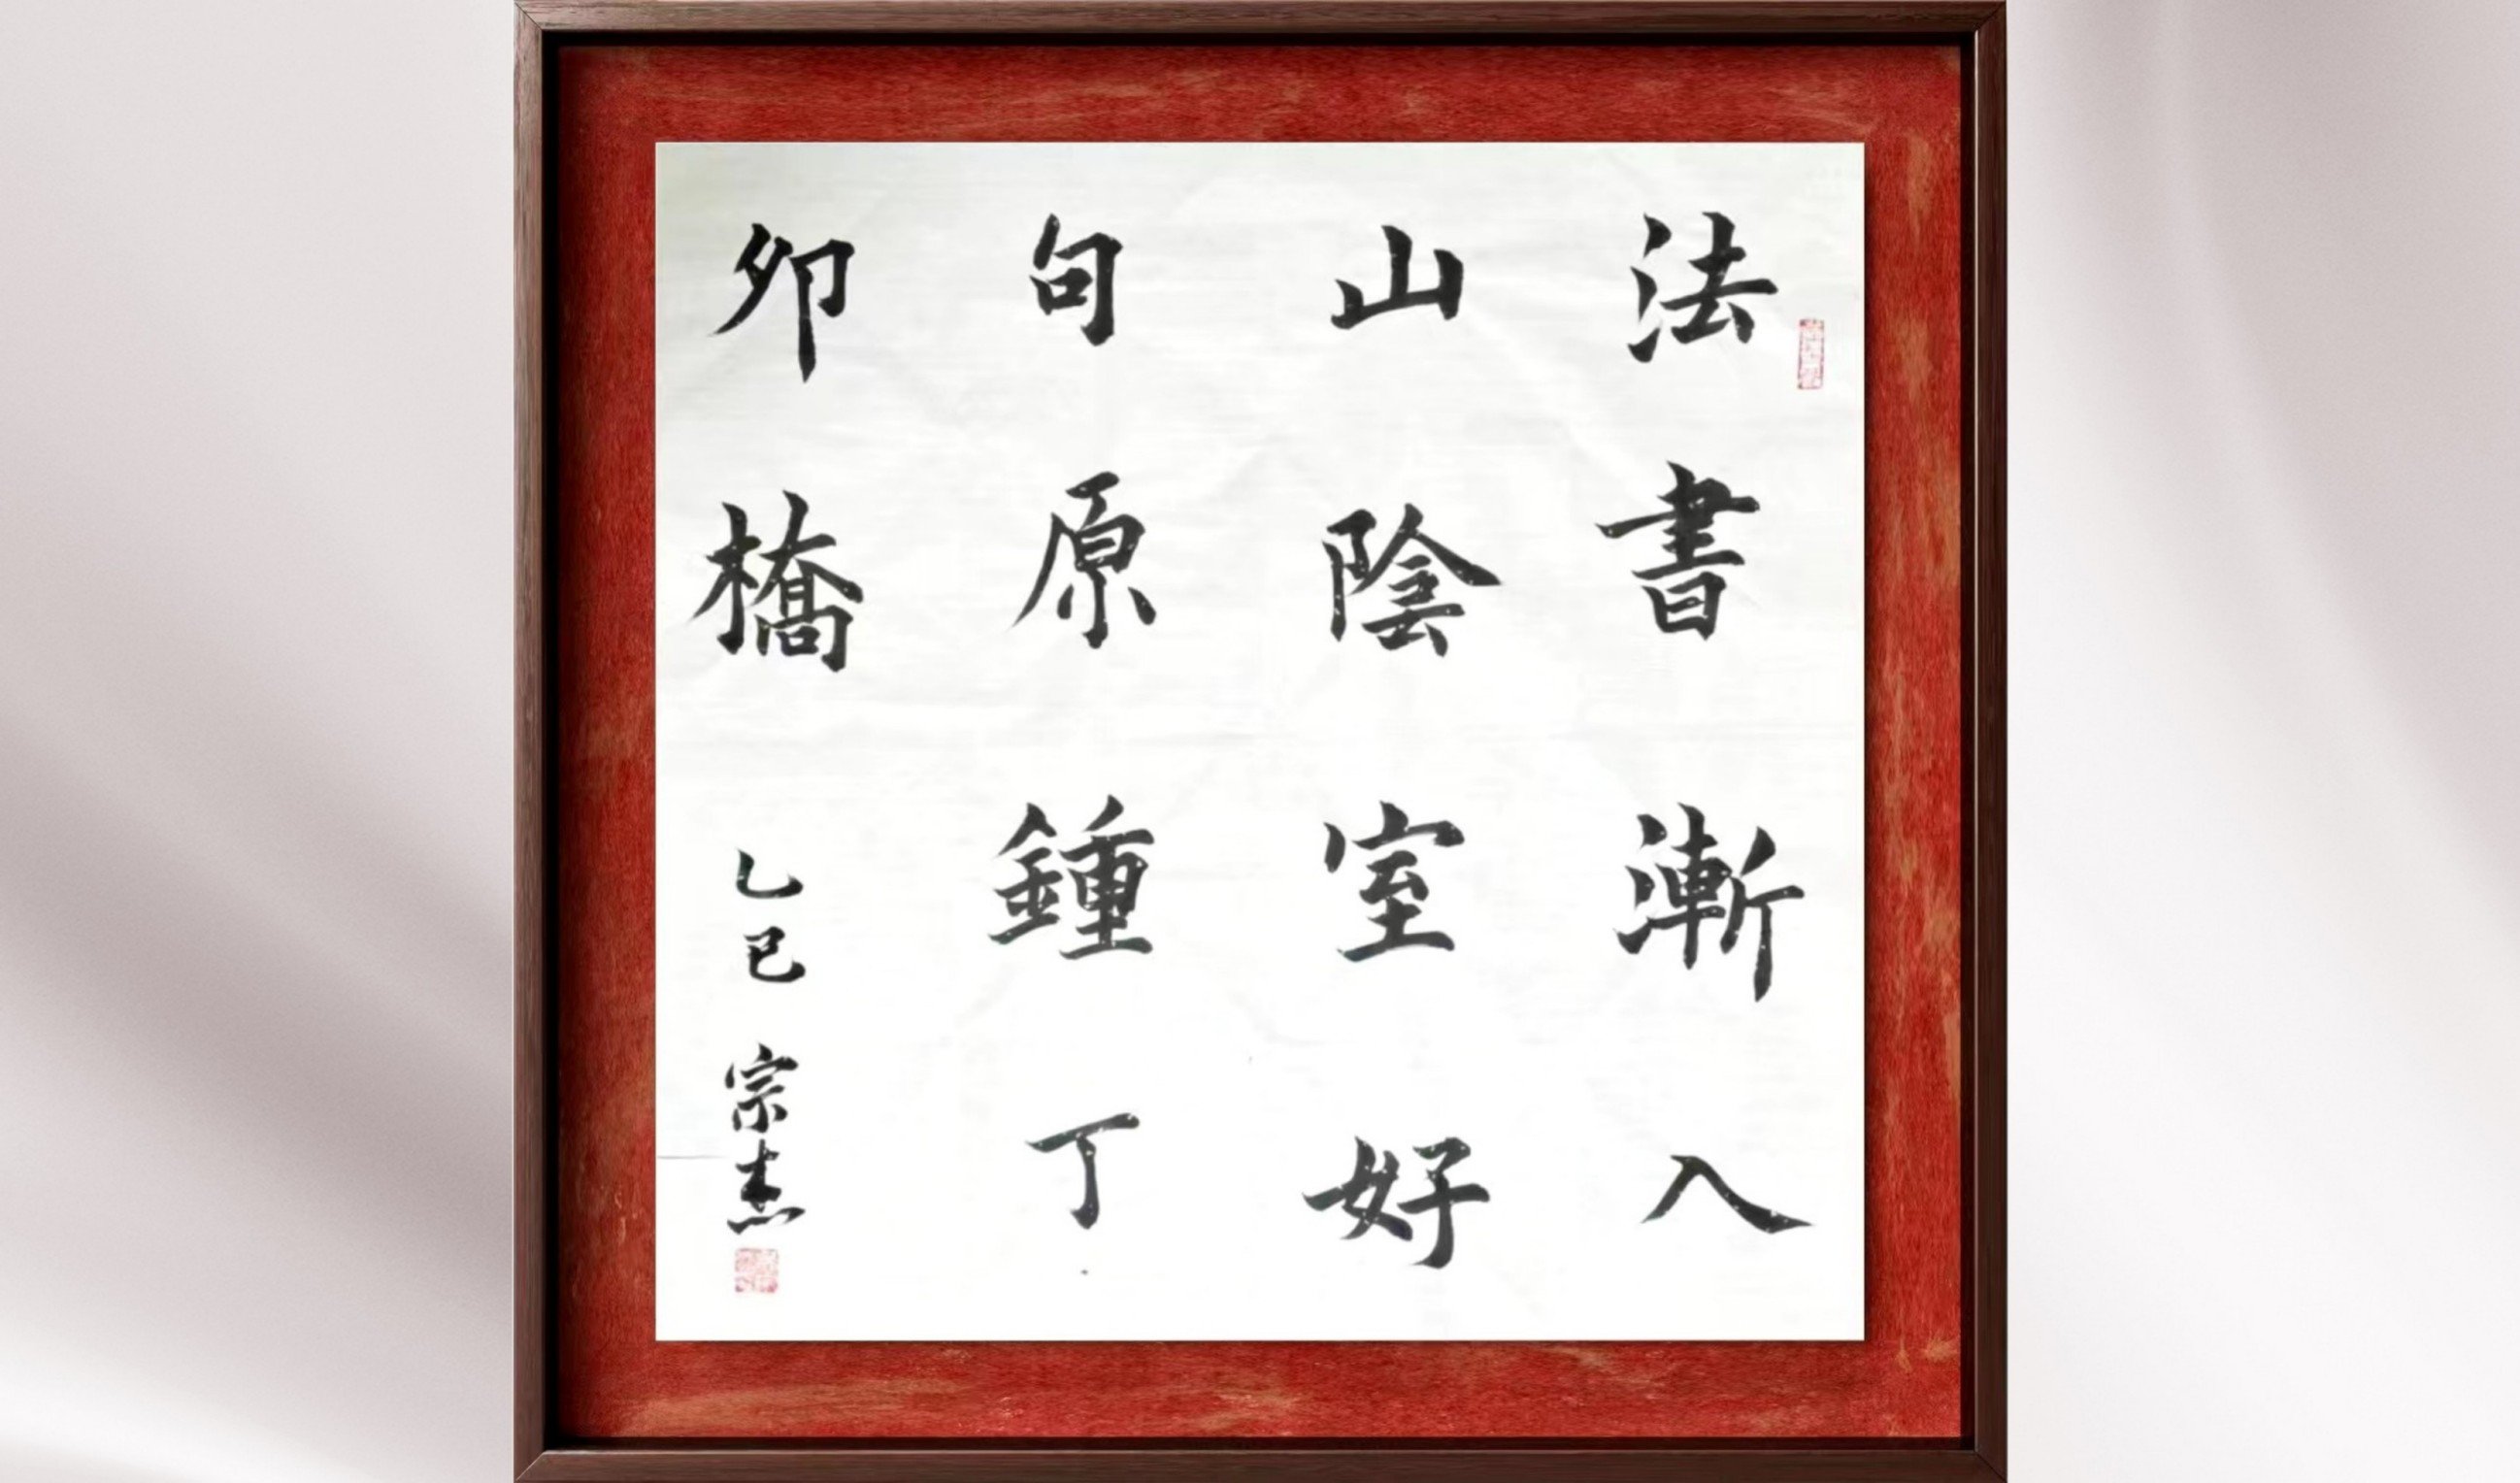 法書漸入
山陰室好
句原鍾丁
卯橋
乙巳 宗杰